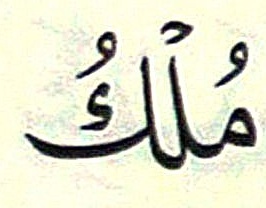 مُلْكُ